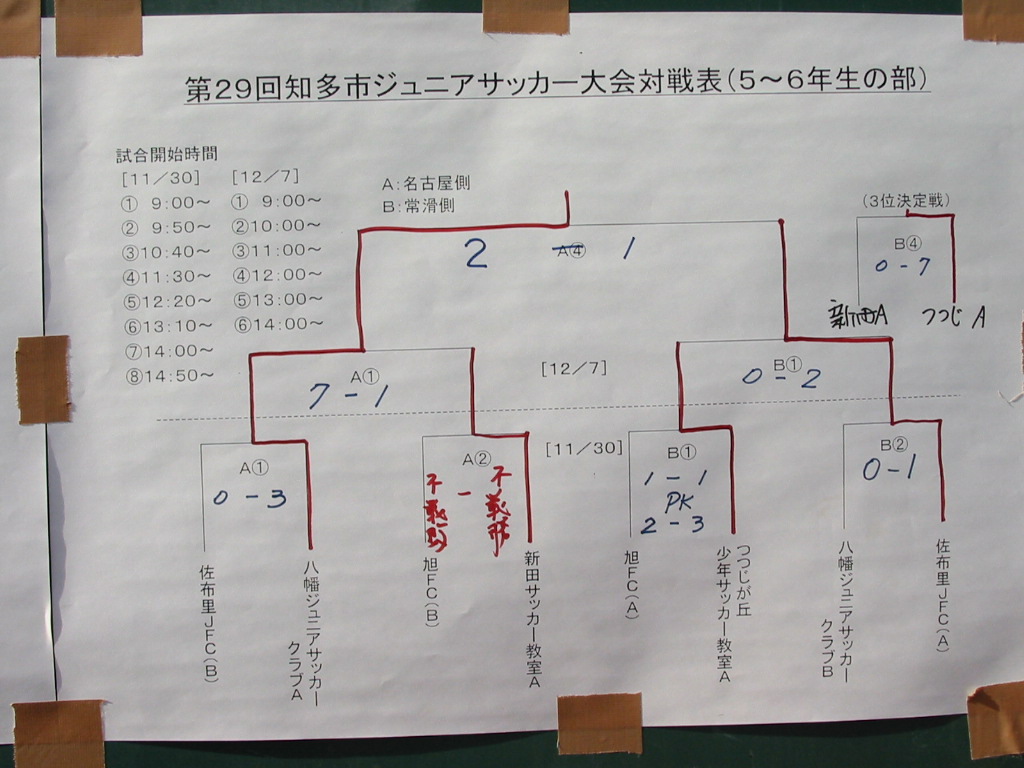 第29回知多市ジュニアサッカー大会対戦表(5～6年生の部)
試合開始時間
[11/30] [12/7]
① 9:00～ ① 9:00～
② 9:50～ ②10:00～
③10:40～ ③11:00～
④11:30～ ④12:00～
⑤12:20～ ⑤13:00～
⑥13:10～ ⑥14:00～
⑦14:00～
⑧14:50～
A:名古屋側
B:常滑側
(3位決定戦)
B④
0-7
新田A つつじA
2 A④ 1
[12/7]
A①
7-1
B①
0-2
[11/30]
A①
0-3
A②
不戦敗 - 不戦勝
B①
1-1
PK
2-3
B②
0-1
佐布里JFC(B)
八幡ジュニアサッカー
クラブA
旭FC(B)
新田サッカー教室A
旭FC(A)
つつじが丘
少年サッカー教室A
八幡ジュニアサッカー
クラブB
佐布里JFC(A)